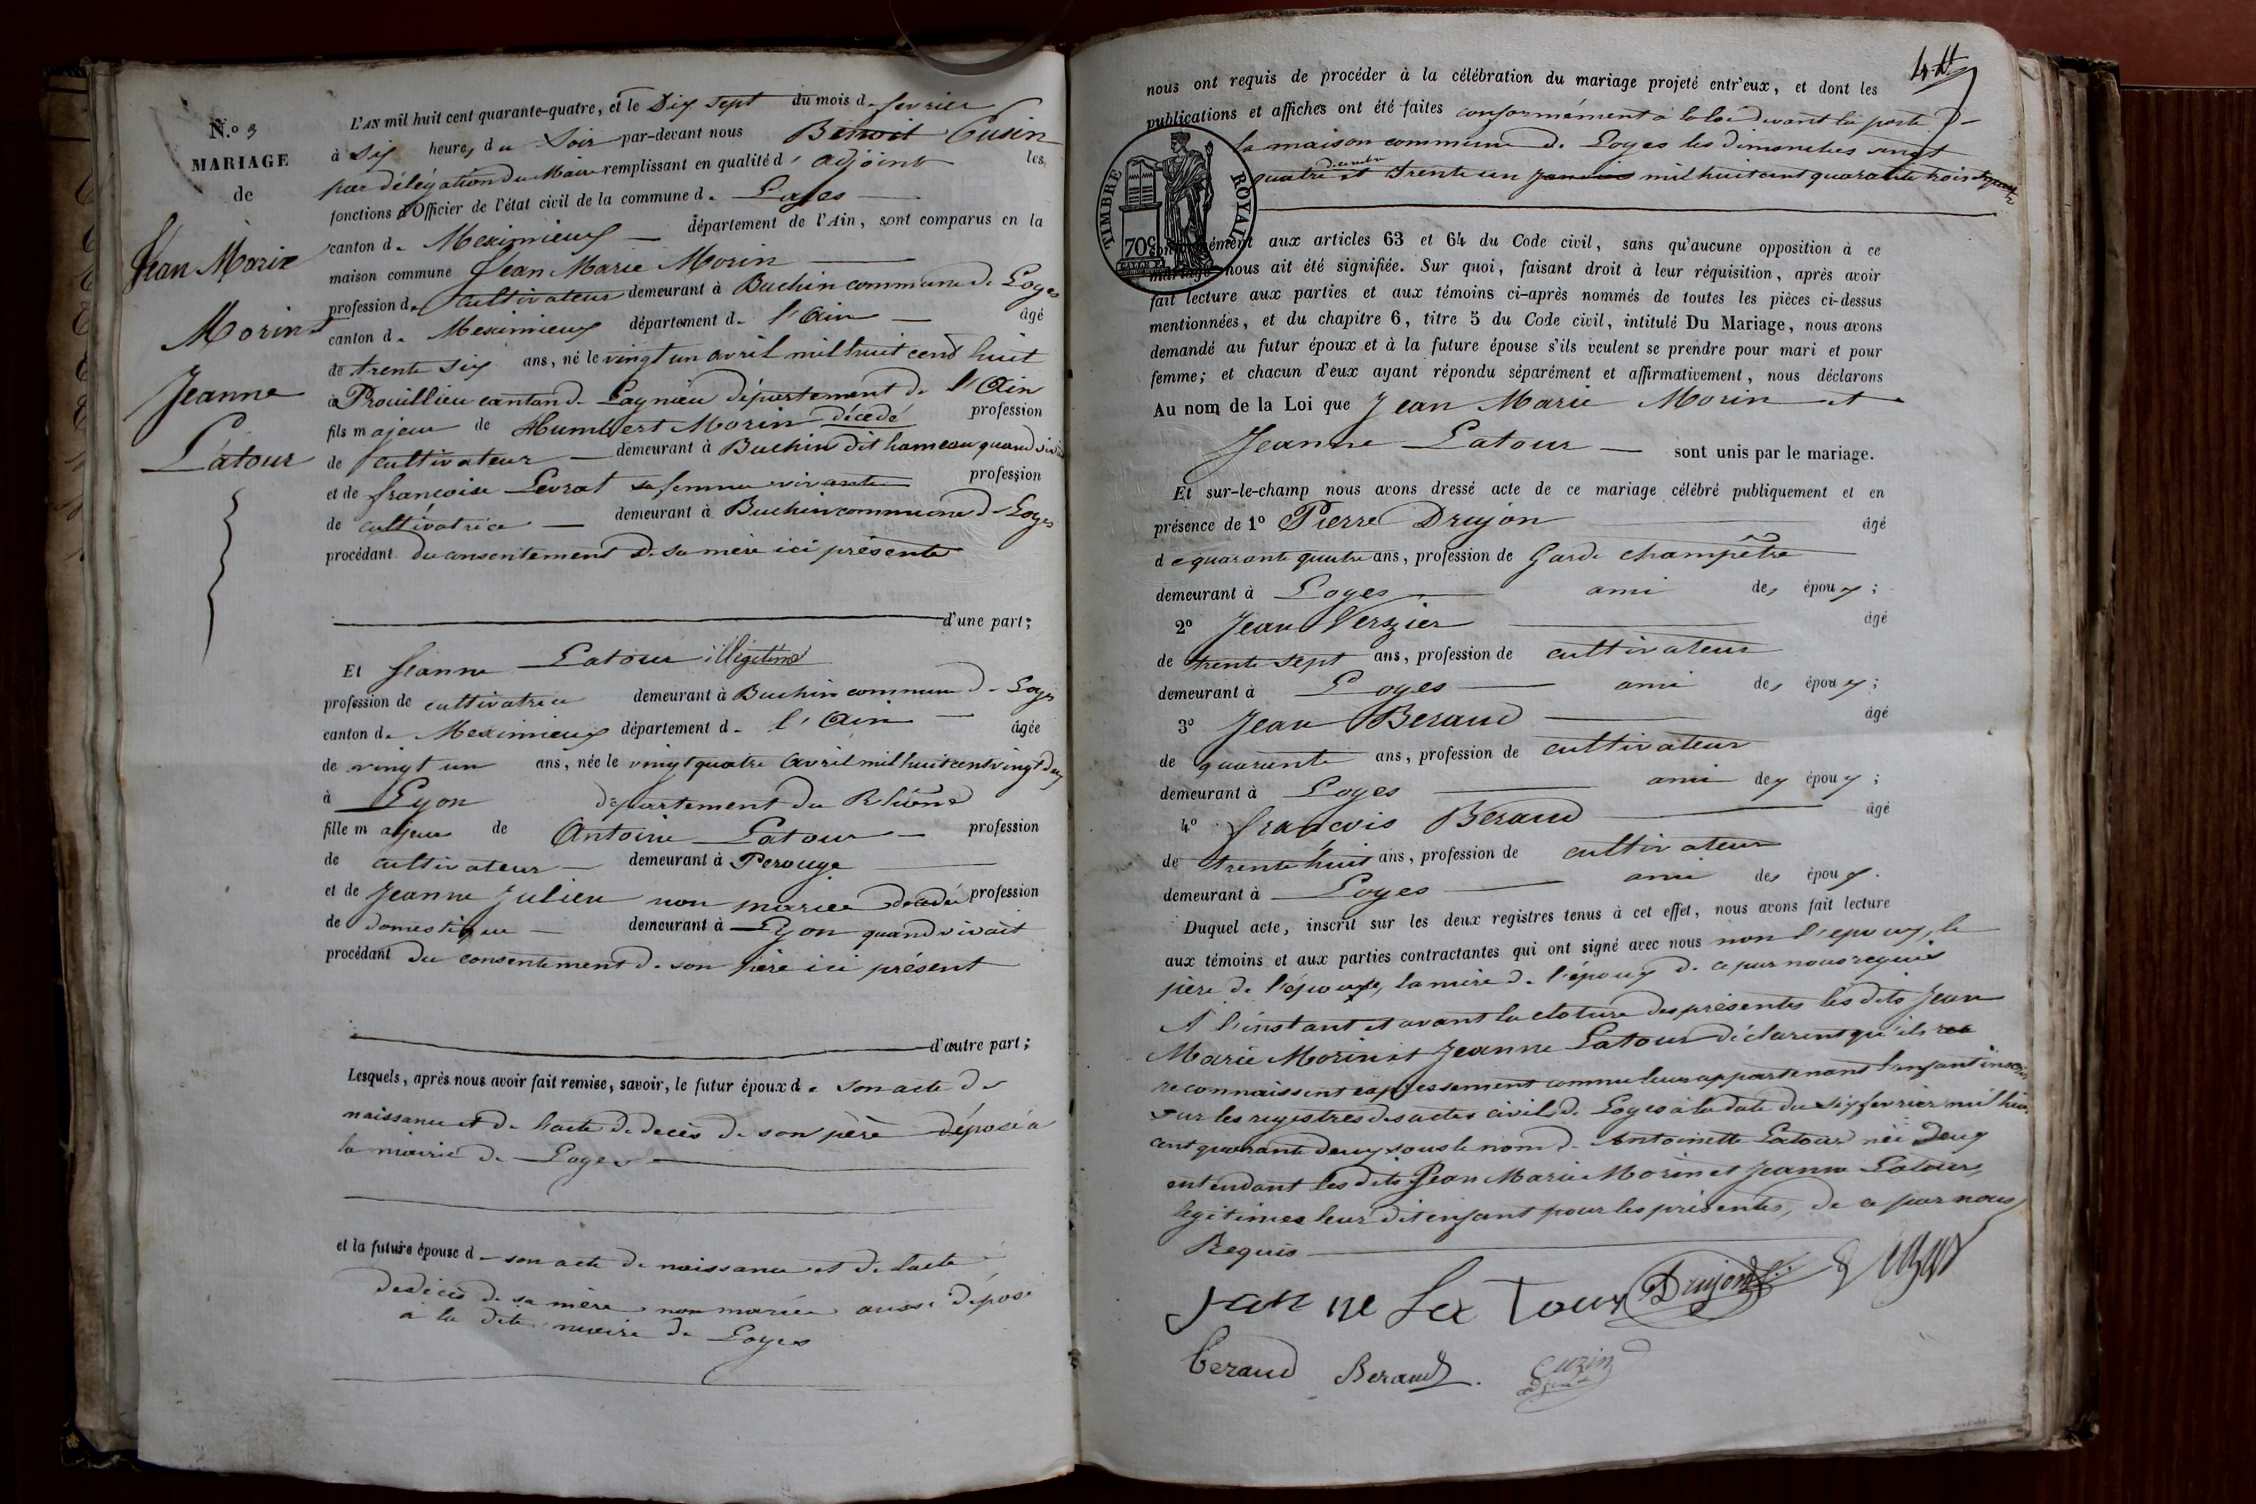 N.º 3
MARIAGE
de
Jean Marie
Morin
Jeanne
Latour
L'AN mil huit cent quarante-quatre, et le Dix sept du mois de fevrier
à six heures du Soir par-devant nous Benoit Cusin
par délégation du Maire remplissant en qualité d'adjoint les
fonctions d'Officier de l'état civil de la commune de Loyes
canton de Meximieux département de l'Ain, sont comparus en la
maison commune Jean Marie Morin
profession de cultivateur demeurant à Buchin commune de Loyes
canton de Meximieux département de l'Ain âgé
de trente six ans, né le vingt un avril mil huit cent huit
à Proulieu canton de Lagnieu département de l'Ain
fils majeur de Humbert Morin décédé profession
de cultivateur demeurant à Buchin dit hameau quand vivait
et de françoise Levrat sa femme vivante profession
de cultivatrice demeurant à Buchin commune de Loyes
procédant du consentement de sa mère ici présente
d'une part;
Et Jeanne Latour illégitime
profession de cultivatrice demeurant à Buchin commune de Loyes
canton de Meximieux département de l'Ain âgée
de vingt un ans, née le vingt quatre avril mil huit cent vingt deux
à Lyon département du Rhône
fille majeure de Antoine Latour profession
de cultivateur demeurant à Perouge
et de Jeanne Julien non mariée décédée profession
de domestique demeurant à Lyon quand vivait
procédant du consentement de son père ici présent
d'autre part;
Lesquels, après nous avoir fait remise, savoir, le futur époux de son acte de
naissance et de l'acte de décès de son père déposé à
la mairie de Loyes
et la future épouse de son acte de naissance et de l'acte
de décès de sa mère non mariée aussi déposé
à la dite mairie de Loyes
nous ont requis de procéder à la célébration du mariage projeté entr'eux, et dont les
publications et affiches ont été faites conformément à la loi devant la porte de
la maison commune de Loyes les dimanches vingt
decembre
quatre et trente un janvier mil huit cent quarante trois
TIMBRE ROYAL
70c
conformément aux articles 63 et 64 du Code civil, sans qu'aucune opposition à ce
mariage nous ait été signifiée. Sur quoi, faisant droit à leur réquisition, après avoir
fait lecture aux parties et aux témoins ci-après nommés de toutes les pièces ci-dessus
mentionnées, et du chapitre 6, titre 5 du Code civil, intitulé Du Mariage, nous avons
demandé au futur époux et à la future épouse s'ils veulent se prendre pour mari et pour
femme; et chacun d'eux ayant répondu séparément et affirmativement, nous déclarons
Au nom de la Loi que Jean Marie Morin et
Jeanne Latour sont unis par le mariage.
Et sur-le-champ nous avons dressé acte de ce mariage célébré publiquement et en
présence de 1º Pierre Drujon âgé
de quarante quatre ans, profession de Garde champêtre
demeurant à Loyes ami des époux;
2º Jean Verzier âgé
de trente sept ans, profession de cultivateur
demeurant à Loyes ami des époux;
3º Jean Beraud âgé
de quarante ans, profession de cultivateur
demeurant à Loyes ami des époux;
4º françois Beraud âgé
de trente huit ans, profession de cultivateur
demeurant à Loyes ami des époux.
Duquel acte, inscrit sur les deux registres tenus à cet effet, nous avons fait lecture
aux témoins et aux parties contractantes qui ont signé avec nous non l'epoux, le
père de l'épouse, la mère de l'époux de ce par nous requis
A l'instant et avant la cloture des présentes les dits Jean
Marie Morin et Jeanne Latour déclarent qu'ils
reconnaissent expressement comme leur appartenant l'enfant inscrit
sur les registres des actes civils de Loyes à la date du six fevrier mil huit
cent quarante deux sous le nom de Antoinette Latour née Deux
entendant les dits Jean Marie Morin et Jeanne Latour
legitimer leur dit enfant pour les présentes, de ce par nous
Requis
Jeanne La Tour Drujon
beraud Beraud Cuzin